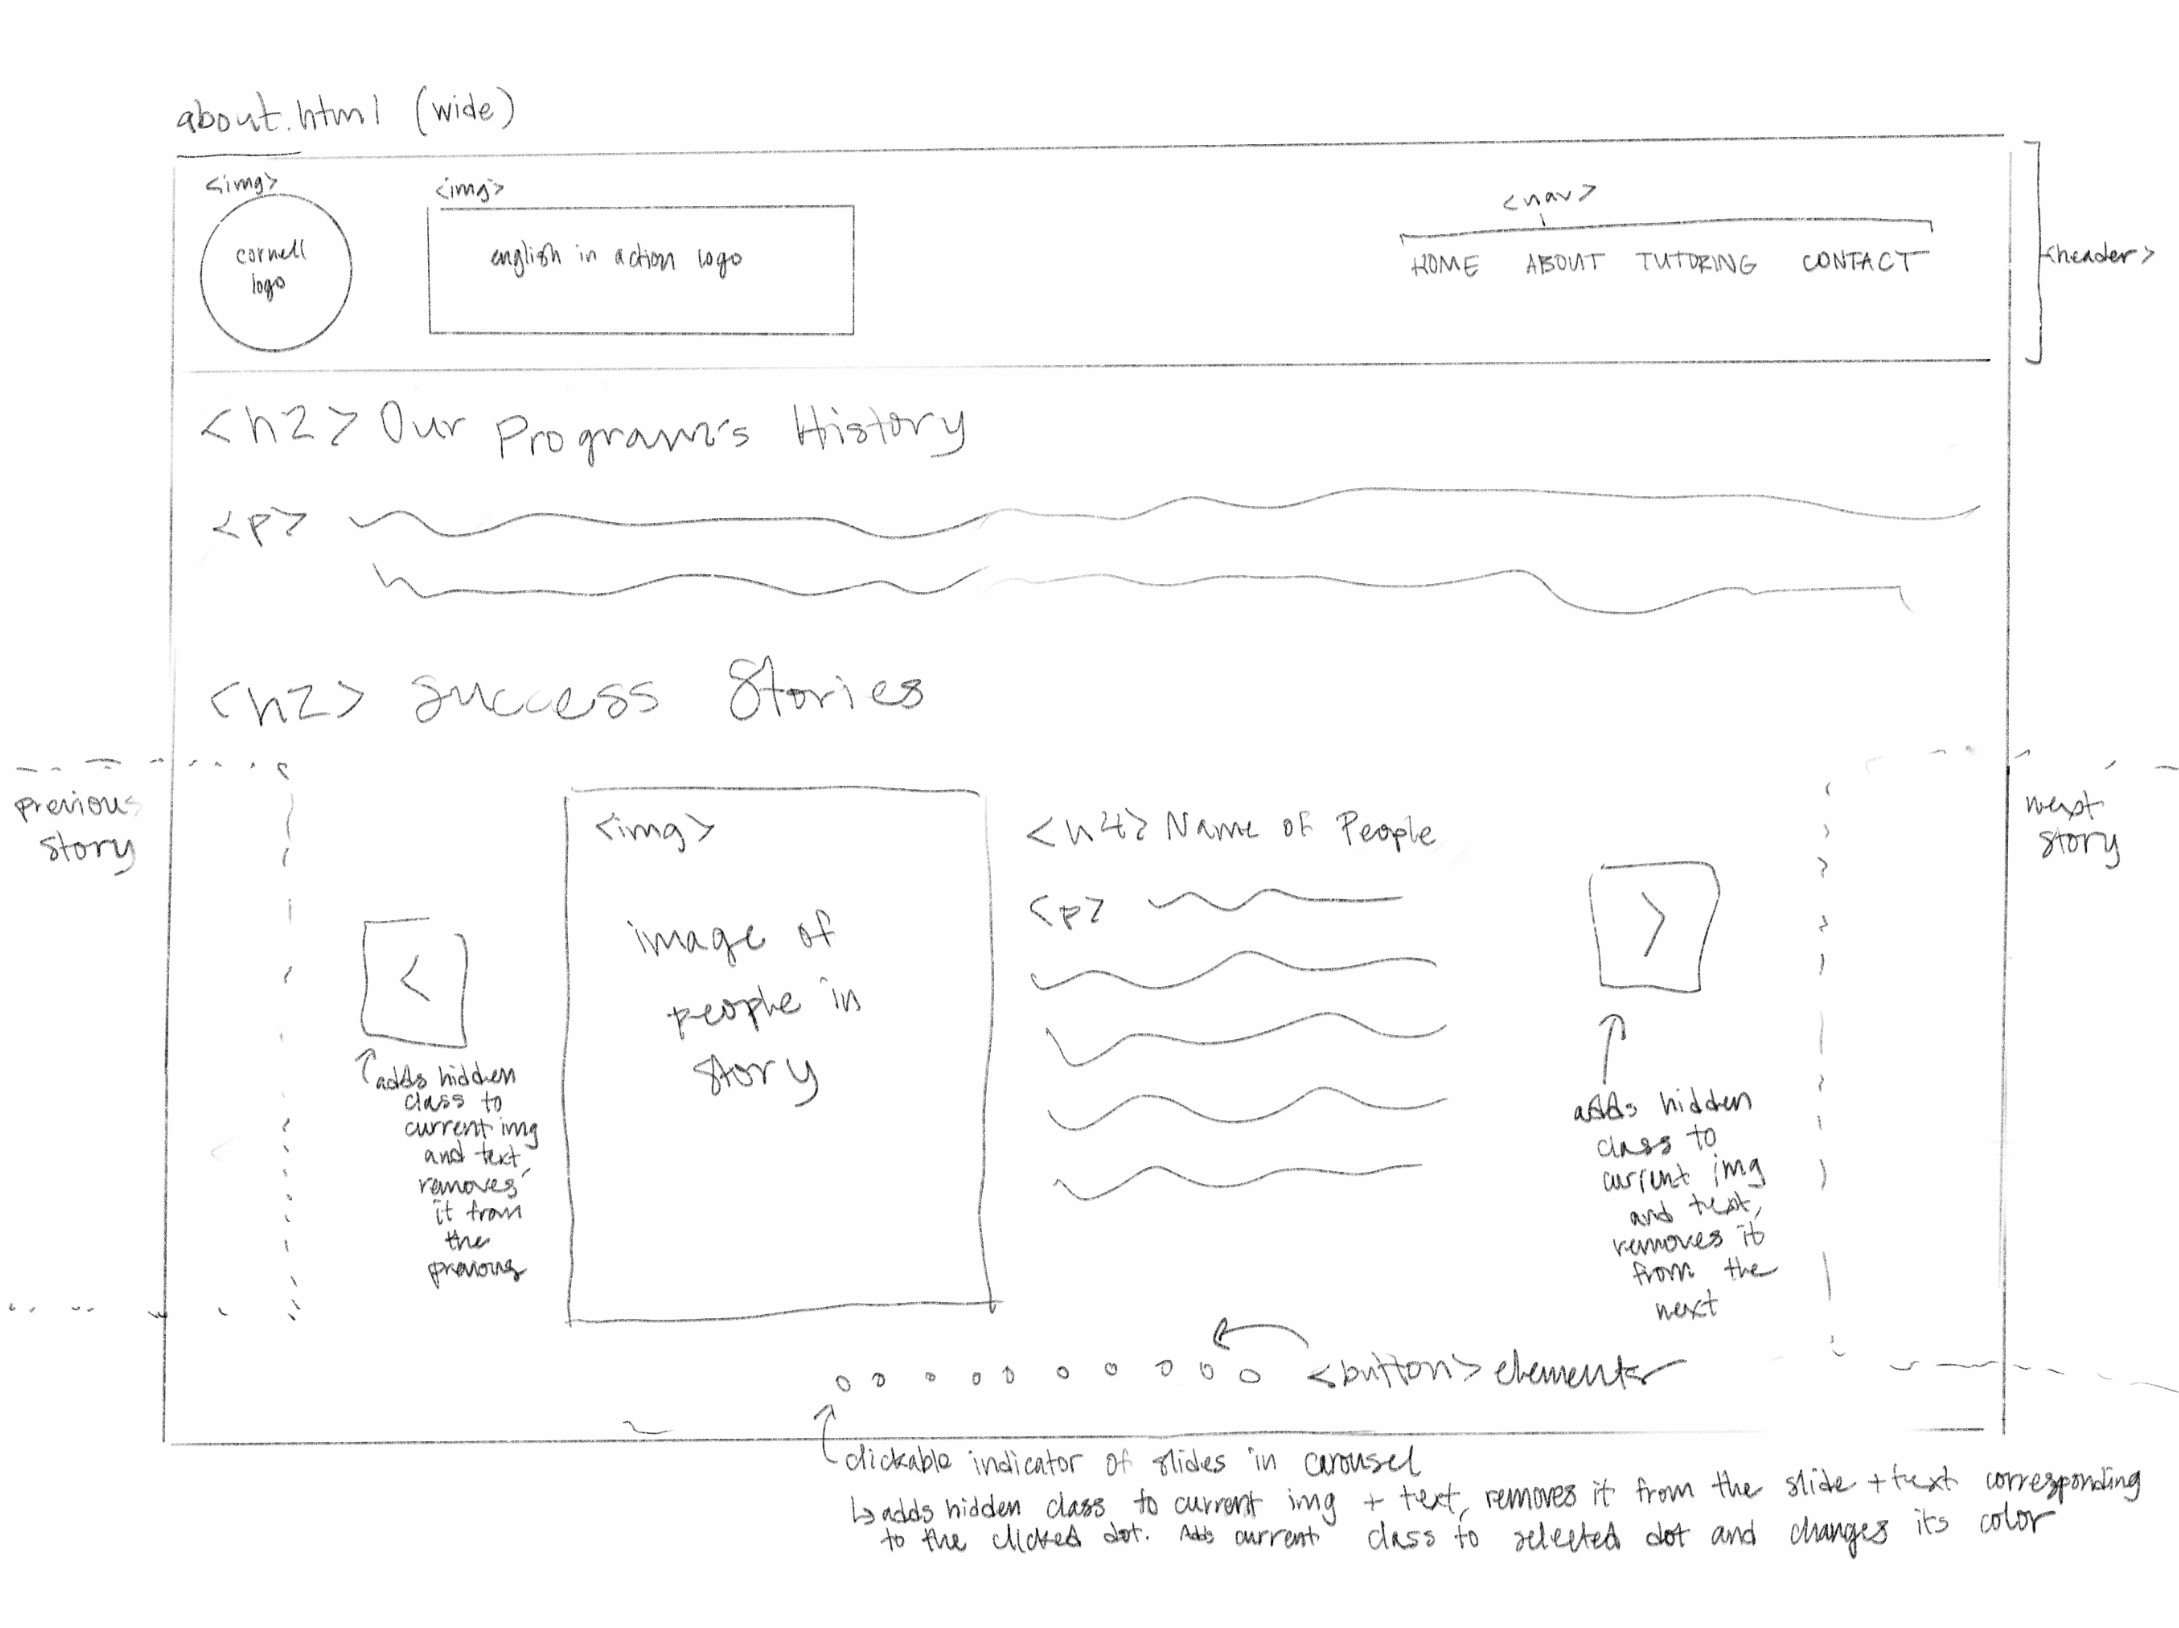 about.html (wide)
<img>
cornell
logo
<img>
english in action logo
<nav>
HOME ABOUT TUTORING CONTACT
<header>
<h2> Our Program's History
<p>
<h2> Success Stories
previous
story
<
adds hidden
class to
current img
and text,
removes
it from
the
previous
<img>
image of
people in
story
<h4> Name of People
<p>
>
adds hidden
class to
current img
and text,
removes it
from the
next
next
story
<button> elements
clickable indicator of slides in carousel
↳ adds hidden class to current img + text, removes it from the slide + text corresponding
to the clicked dot. Adds current class to selected dot and changes its color